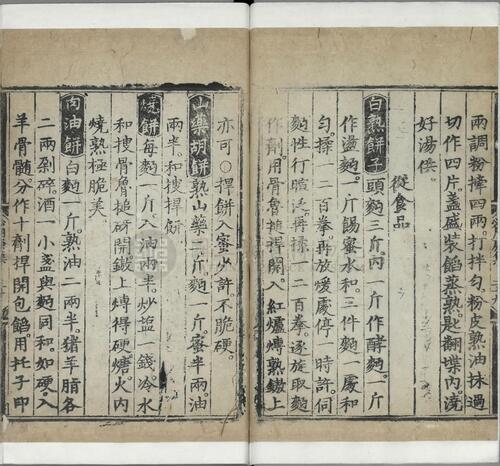 兩調粉捧四兩打拌勻粉皮熟油抹過
切作四片盞盛裝餡蒸熟匙翻楪內澆
好湯供
從食品
白熟餅子頭麪三斤內一斤作酵麪一斤
作盪麪一斤餳蜜水和三件麪一處和
勻揉一二百拳再放煖處停一時許伺
麪性行暄泛再揉一二百拳逐旋取麪
作劑用骨魯槌捍開入紅爐煿熟鏾上
亦可○捍餅入蜜少許不脆硬
山藥胡餅熟山藥二斤麪一斤蜜半兩油
半兩和搜捍餅
燒餅每麪一斤入油兩半炒塩一錢冷水
和搜骨魯槌砑開鏾上煿得硬煻火內
燒熟極脆美
肉油餅白麪一斤熟油二兩半猪羊脂各
二兩剁碎酒一小盞與麪同和如硬入
羊骨髓分作十劑捍開包餡用托子印